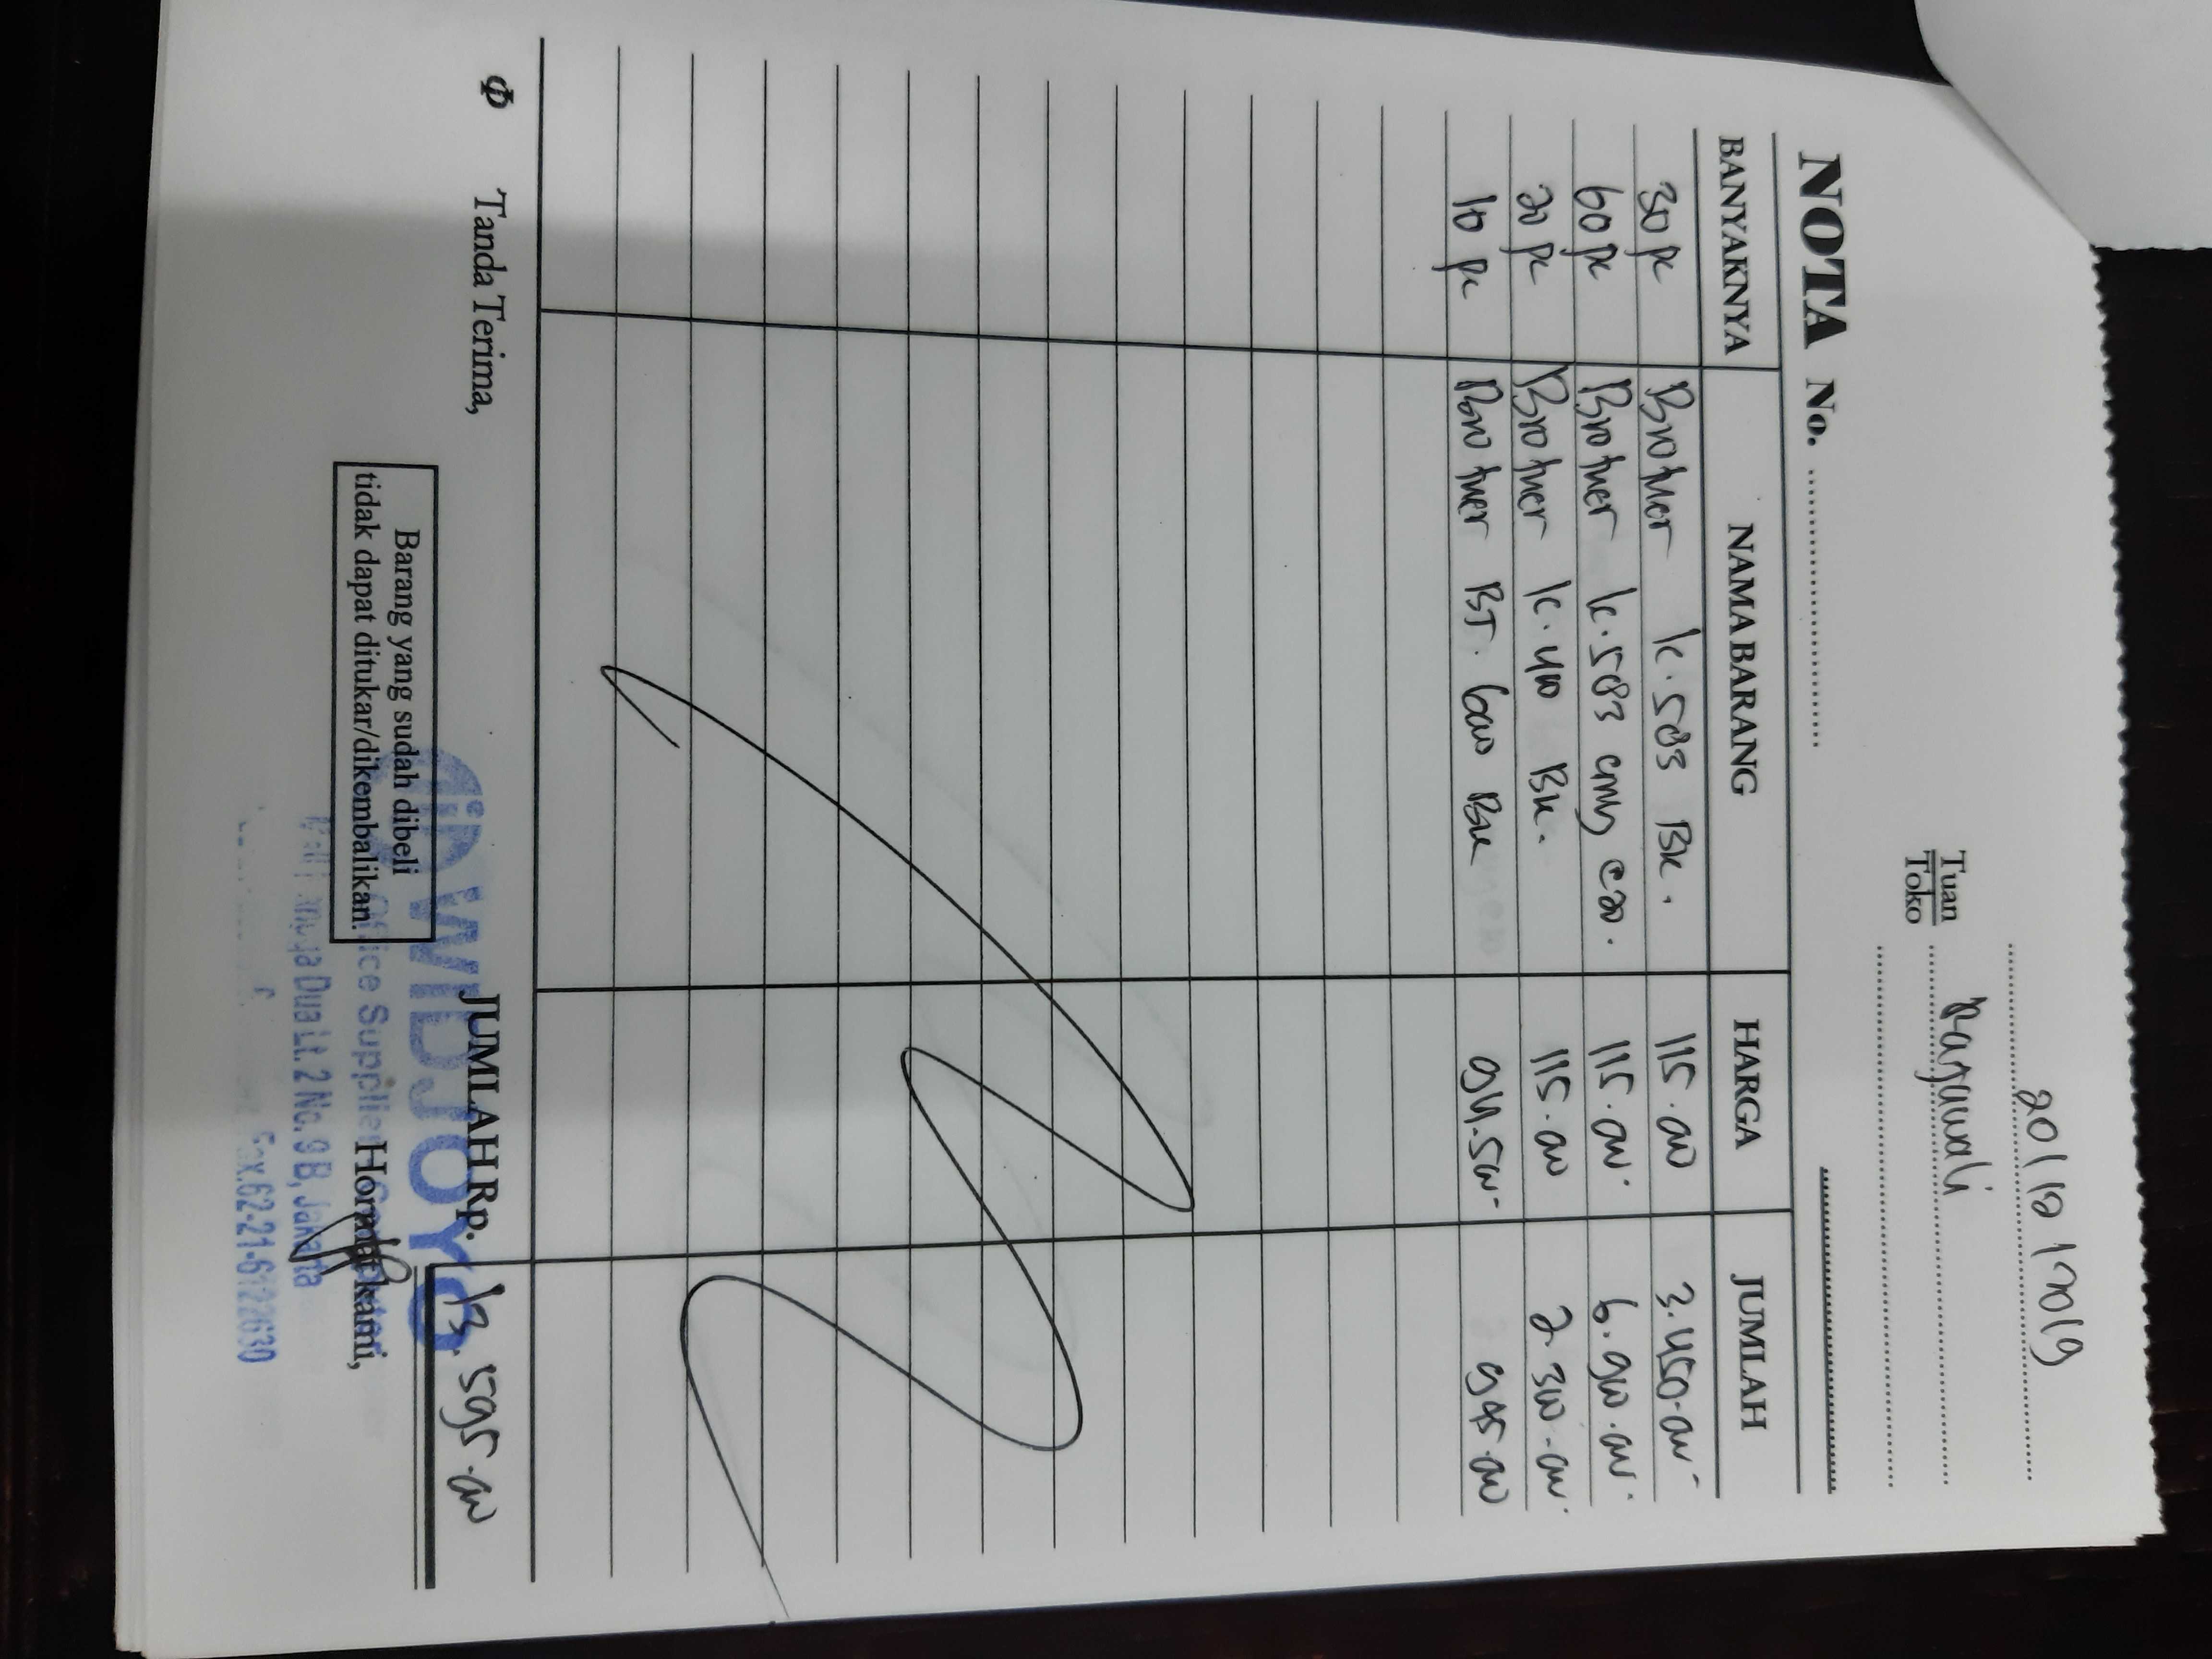 20/12/2019
Tuan
Toko
Rajawali
NOTA No.
BANYAKNYA NAMA BARANG HARGA JUMLAH
30 pc Brother lc.583 BK. 115.000 3.450.000-
60 pc Brother lc.583 cmy @20. 115.000- 6.900.000-
20 pc Brother lc.40 BK. 115.000 2.300.000-
10 pc Brother BT.6000 BK 94.500- 945.000
JUMLAH Rp. 13.595.000
Φ Tanda Terima,
Barang yang sudah dibeli
tidak dapat ditukar/dikembalikan.
WIDJOYO
Hormat kami,
Office Supplies
Mangga Dua Lt. 2 No. 9 B, Jakarta
Fax.62-21-6122630